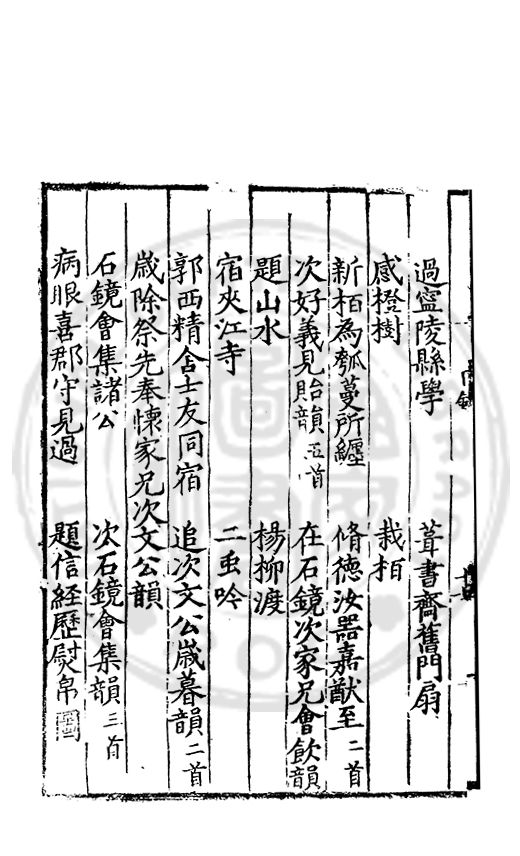 過寧陵縣學 葺書齋舊門扇
感橙樹 栽栢
新栢為瓠蔓所纏 脩德汝器嘉猷至二首
次好義見貽韻五首 在石鏡次家兄會飲韻
題山水 楊柳渡
宿夾江寺 二虫吟
郭西精舍士友同宿 追次文公歲暮韻二首
歲除祭先奉懷家兄次文公韻
石鏡會集諸公 次石鏡會集韻三首
病眼喜郡守見過 題信經歷熨帛